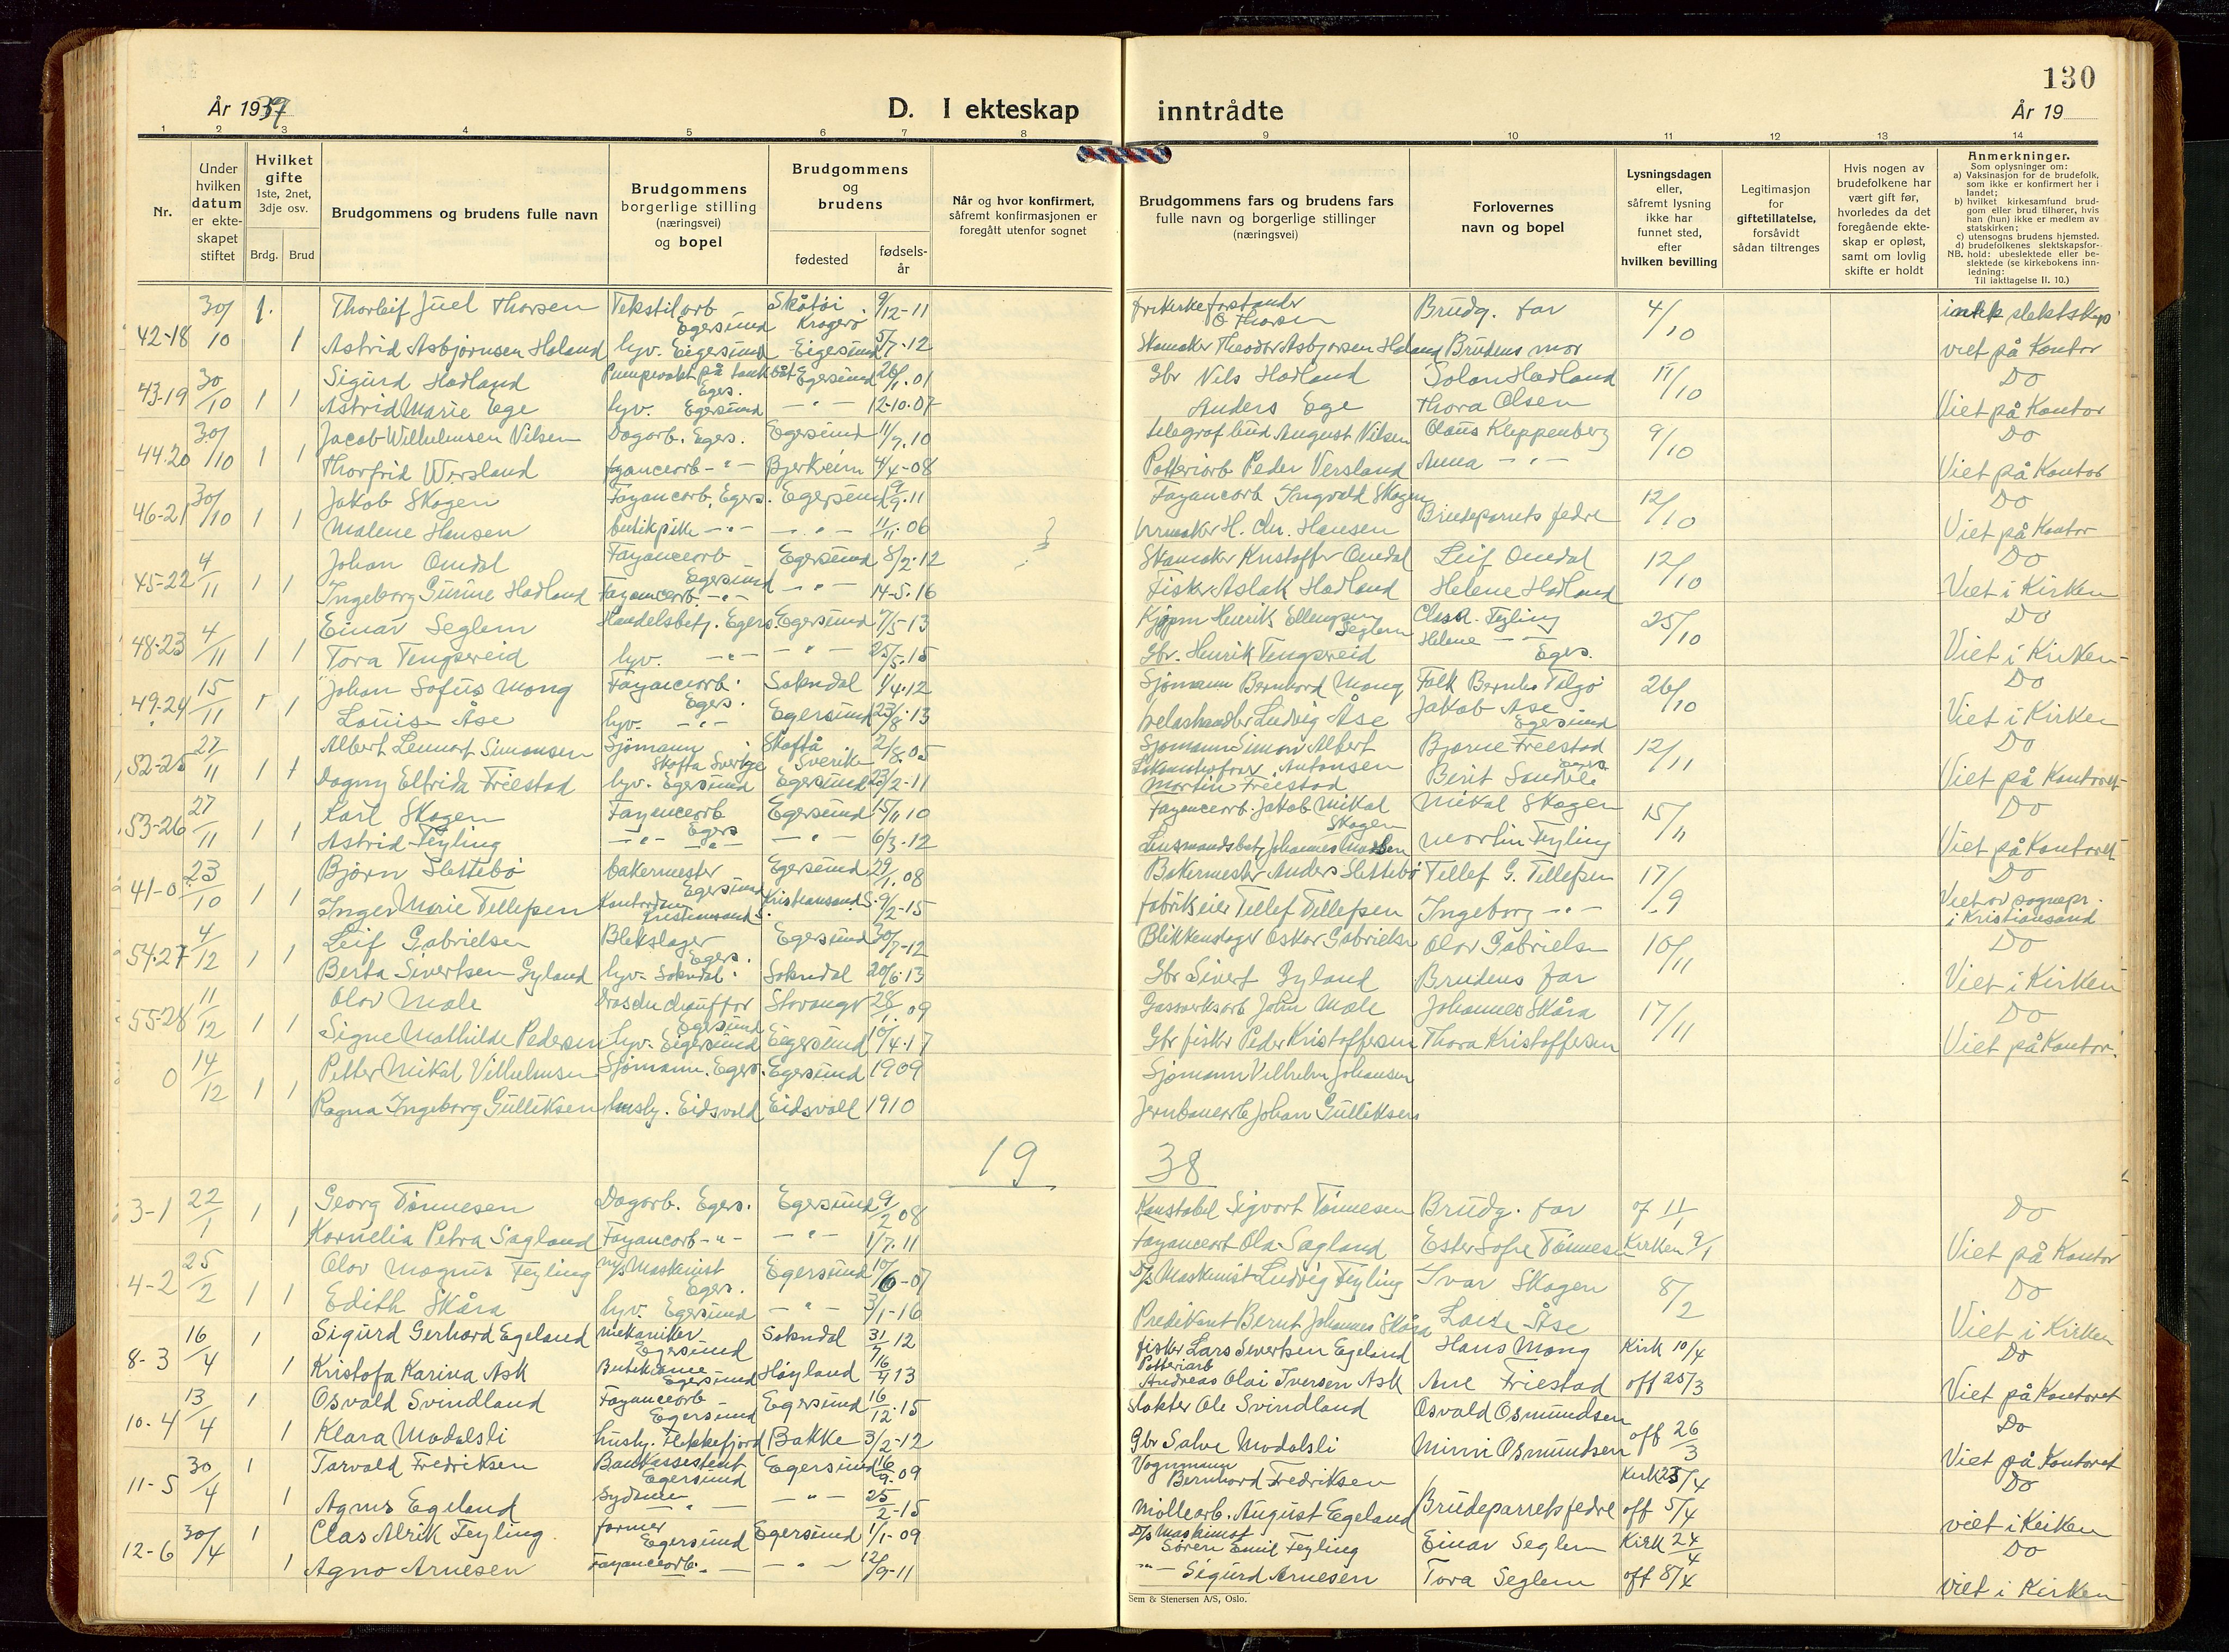 130
År 1937
D. I ekteskap inntrådte
År 19
1 2 3 4 5 6 7 8 9 10 11 12 13 14
Nr.
Under hvilken datum er ekteskapet stiftet
Hvilket gifte 1ste, 2net, 3dje osv.
Brdg. Brud
Brudgommens og brudens fulle navn
Brudgommens borgerlige stilling (næringsvei) og bopel
Brudgommens og brudens
fødested
fødsels-år
Når og hvor konfirmert, såfremt konfirmasjonen er foregått utenfor sognet
Brudgommens fars og brudens fars fulle navn og borgerlige stillinger (næringsvei)
Forlovernes navn og bopel
Lysningsdagen eller, såfremt lysning ikke har funnet sted, efter hvilken bevilling
Legitimasjon for giftetillatelse, forsåvidt sådan tiltrenges
Hvis nogen av brudefolkene har vært gift før, hvorledes da det foregående ekteskap er opløst, samt om lovlig skifte er holdt
Anmerkninger.
Som oplysninger om:
a) Vaksinasjon for de brudefolk, som ikke er konfirmert her i landet;
b) hvilket kirkesamfund brudgom eller brud tilhører, hvis han (hun) ikke er medlem av statskirken;
c) utensogns brudens hjemsted.
d) brudefolkenes slektskapsforhold: ubeslektede eller beslektede (se kirkebokens innledning:
NB.
Til iakttagelse II. 10.)
42-18 30/10 1. Thorleif Juel Thorsen Tekstilarb Egersund Skåtøi Kragerø 9/12-11 frikirkeforstander O Thorsen Brudg. far 4/10 intet slektskap
1 Astrid Asbjørnsen Haland hyv. Eigersund Eigersund 5/7-12 Skomaker Theodor Asbjørnsen Haland Brudens mor viet på Kontor
43-19 30/10 1 1 Sigurd Hadland Pumpevakt på tankbåt Egers. Egersund 26/1.01 Gbr Nils Hadland Solan Hadland 11/10 Do
Astrid Marie Ege hyv. Egersund — " — 12-10-07 Anders Ege Thora Olsen Viet på Kontor
44.20 30/10 1 1 Jacob Wilhelmsen Nilsen Dagarb. Egers. Egersund 11/7.10 telegrafbud August Nilsen Olaus Kleppenberg 9/10 Do
Thorfrid Wersland fayancearb - " - Bjerkreim 4/4-08 Potteriarb Peder Versland Anna - " - Viet på Kontor
46-21 30/10 1 1 Jakob Skogen Fayancarb. Egers. Egersund 9/9.11 Fayancarb Ingvald Skogen Brudeparrets fedre 12/10 Do
Malene Hansen butikpike - " - - " - 11/11.06 urmaker H. Chr. Hansen Viet på Kontor
45-22 4/11 1 1 Johan Omdal Fayancearb Egersund Egersund 8/2.12 Skomaker Kristoffer Omdal Leif Omdal 12/10 Do
Ingeborg Gurine Hadland Fayancearb. - " - - " - 14-5.16 Fisker Aslak Hadland Helene Hadland Viet i Kirken
48-23 4/11 1 1 Einar Seglem Handelsbetj. Egers. Egersund 7/5-13 Kjøpm Henrik Ellengsen Seglem Clas A. Feyling 25/10 Do
Tora Tengsereid hyv. - " - - " - 25/5.15 Gbr. Henrik Tengsereid Helene - " - Egers. Viet i Kirken
49-24 15/11 1 1 Johan Sofus Mong Fayancearb. Egers. Sokndal 1/4.12 Sjømann Bernhard Mong Falk Bernhs Tilgø 26/10 Do
Louise Åse hyv. - " - Egersund 23/8.13 Ludvig Åse Jakob Åse Egersund Viet i Kirken
52-25 27/11 1 1 Albert Lennart Simonsen Sjømann Skaftå Sverige Skaftå Sverike 2/8.05 Sjømann Simon Albert Antonsen Bjarne Friestad 12/11 Do
Dagny Elfrida Friestad hyv. Egersund Egersund 23/2-11 Martin Friestad Berit Sandve Egers. Viet på Kontoret
53-26 27/11 1 1 Karl Skogen Fayancearb Egers Egersund 15/11 10 Fayancearb. Jakob Mikal Skogen Mikal Skogen 15/11 Do
Astrid Feyling - " - - " - - " - 6/3-12 Lensmandsbetj Johannes Martin Feyling Viet på Kontoret
41-0 23/10 1 1 Bjørn Slettebø bakermester Egersund Egersund 29/1.08 Bakermester Anders Slettebø Tellef G. Tellefsen 17/9 Do
Inger Marie Tellefsen Kontordame Kristiansand S. Kristiansand S. 9/2-15 fabrikeier Tellef Tellefsen Ingeborg - " - Viet av sognepr. i Kristiansand
54-27 4/12 1 1 Leif Gabrielsen Blekslager Egers. Egersund 30/7-12 Blikkenslager Oskar Gabrielsen Olav Gabrielsen 10/11 Do
Berta Sivertsen Gyland hyv. Sokndal. Sokndal 20/6.13 Gbr Sivert Gyland Brudens far Viet i Kirken
55-28 11/12 1 1 Olav Mole Drosdechauffør Egersund Stavanger 28/1.09 Gassverksarb John Mole Johannes Skåra 17/11 Do
Signe Mathilde Pedersen hyv. Eigersund Eigersund 10/4.17 Gbr fisker Peder Kristoffersen Thora Kristoffersen Viet på Kontor.
0 14/12 1 1 Petter Mikal Vilhelmsen Sjømann. Egers. Egersund 1909 Sjømann Vilhelm Johansen
Ragna Ingeborg Gulliksen husby. Eidsvold Eidsvoll 1910 Jernbanearb Johan Gulliksen
19 38
3-1 22/1 1 1 Georg Tønnesen Dagarb. Egers. Egersund 9/2 08 Konstabel Sigvart Tønnesen Brudg. far of 11/1 Do
Kornelia Petra Sagland Fayancarb - " - - " - 1/7.11 Fayancearb Ola Sagland Ester Sofie Tønnesen Kirken 9/1 Viet på Kontor
4-2 25/2 1 1 Olav Magnus Feyling m/s Maskinist Egers. Egersund 10/6-07 D/s Maskinist Ludvig Feyling Ivar Skogen 8/2 Do
Edith Skåra hyv. Egersund - " - 3/1-16 Predikant Bernt Johannes Skåra Loise Åse Viet i Kirken
8-3 16/4 1 Sigurd Gerhard Egeland mekaniker Egersund Sokndal 31/7 12 fisker Lars Sivertsen Egeland Hans Mong Kirk 10/4 Do
1 Kristofa Karina Ask Butikdame Egersund Høyland 16/4 13 Potteriarb Andreas Olai Iversen Ask Ane Friestad off 25/3 Viet på Kontoret
10-4 13/4 1 Osvald Svindland Fayancearb Egersund Egersund 16/12.15 slakter Ole Svindland Osvald Osmundsen off 26/3 Do
1 Klara Modalsli husby. Flekkefjord Bakke 3/2-12 Gbr Salve Modalsli Mimi Osmundsen Viet på Kontoret
11-5 30/4 1 Torvald Fredriksen Bankassestent Egersund Egersund 16/9-09 Vognmann Bernhard Fredriksen Brudeparrets fedre Kirk 23/4 Do
1 Agnes Egeland Sydame - " - - " - 25/2-15 Mollearb. August Egeland off 5/4 viet i Kirken
12-6 30/4 1 Clas Alrik Feyling. former Egersund Egersund 1/1-09 D/s Maskinist Søren Emil Feyling Einar Seglem Kirk 24/4 Do
1 Agno Arnesen Fayancearb. - - " - 12/9-11 - " - Sigurd Arnesen Tora Seglem off 8/4 viet i Kirken
Sem & Stenersen A/S, Oslo.